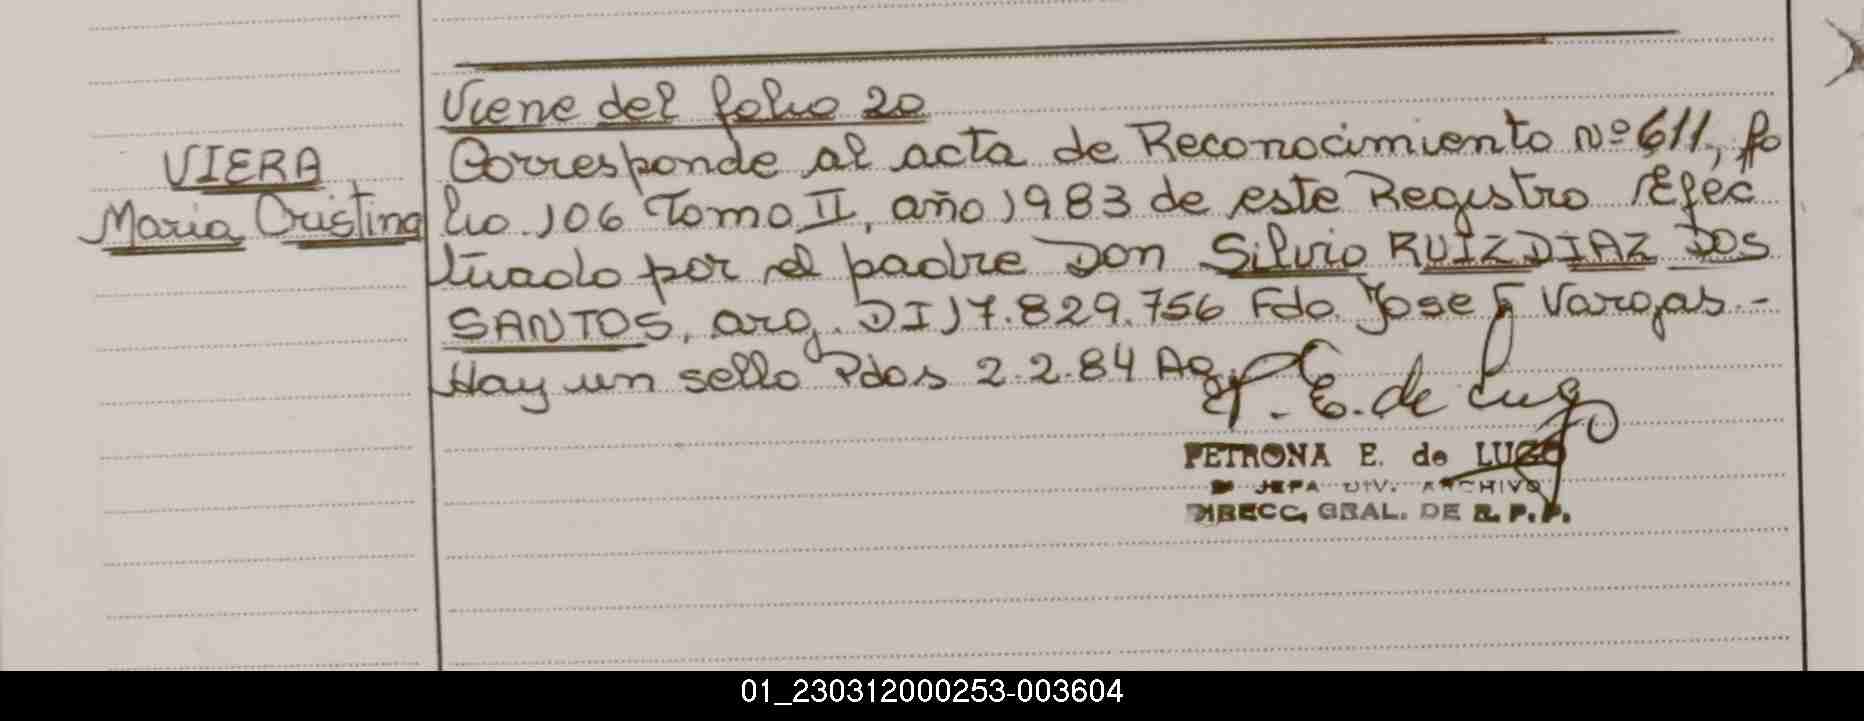 Viene del folio 20
VIERA
Maria Cristina
Corresponde al acta de Reconocimiento Nº 611, fo
lio 106 Tomo II, año 1983 de este Registro Efec
tuado por el padre Don Silvio RUIZ DIAZ DOS
SANTOS, arg. DI 17.829.756 Fdo. Jose F Vargas.-
Hay un sello Pdos 2.2.84 Ag.
P. E. de Lugo
PETRONA E. de LUGO
JEFA DIV. ARCHIVO
DIRECC. GRAL. DE R. P. P.
01_230312000253-003604